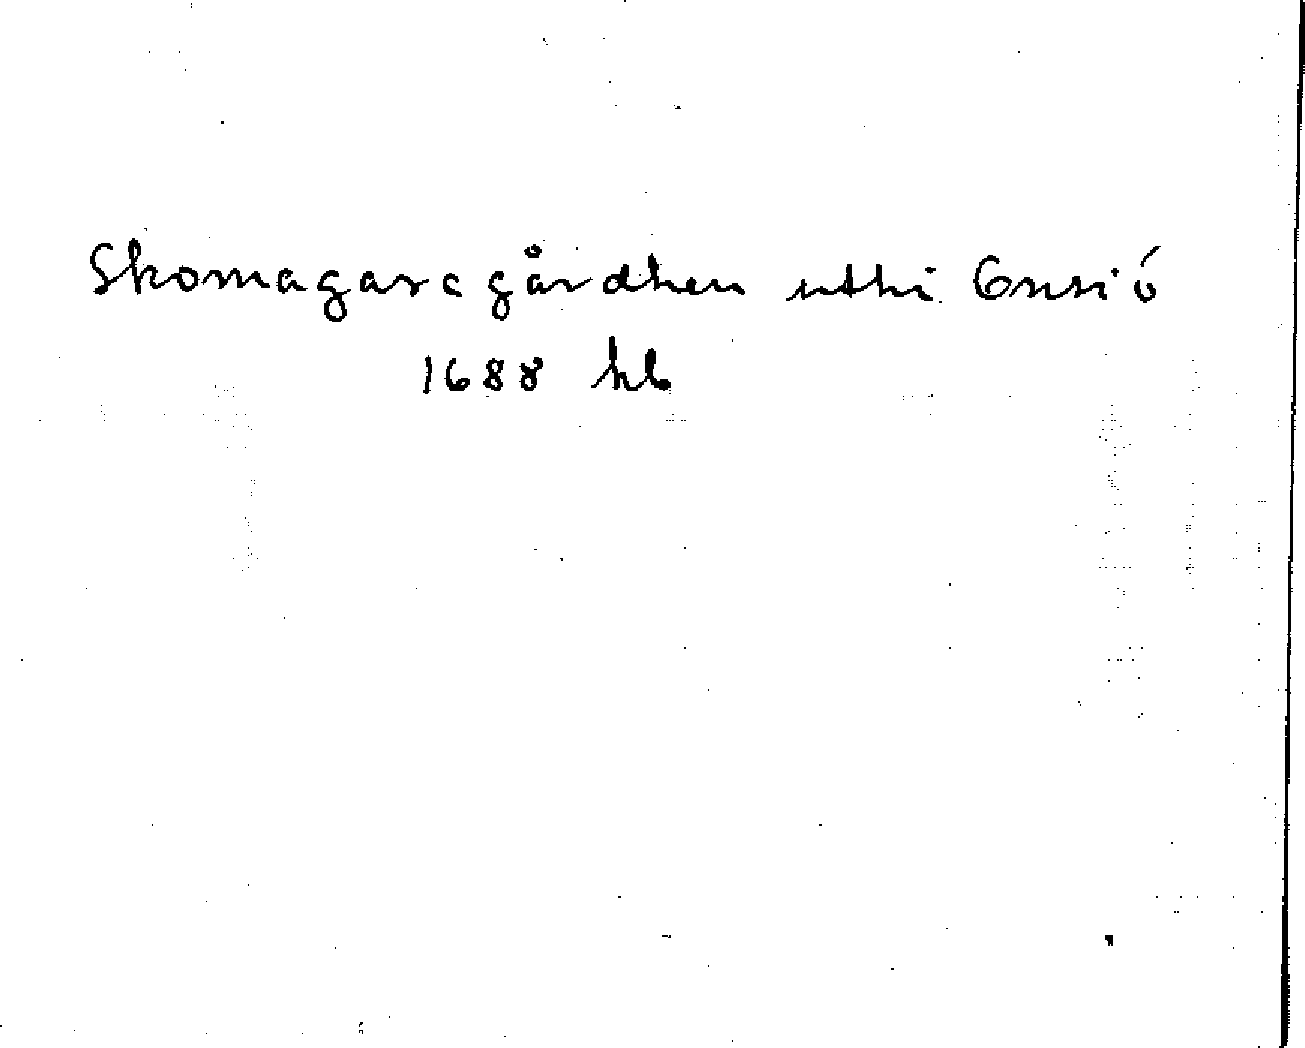 Skomagare gårdhen uthi Onsiö
1688 hb